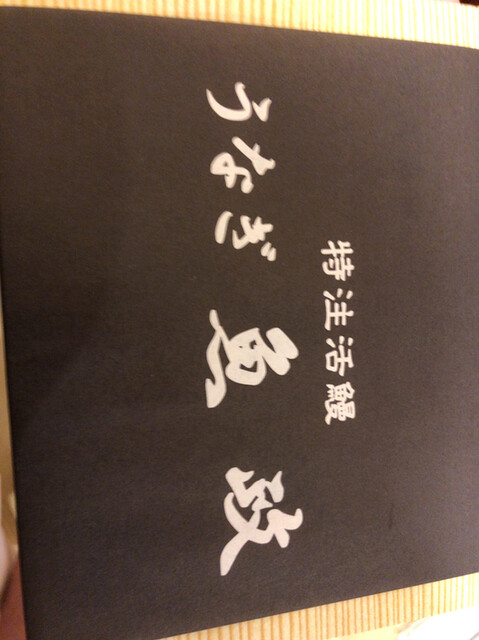 特注活鰻
うなぎ 魚政